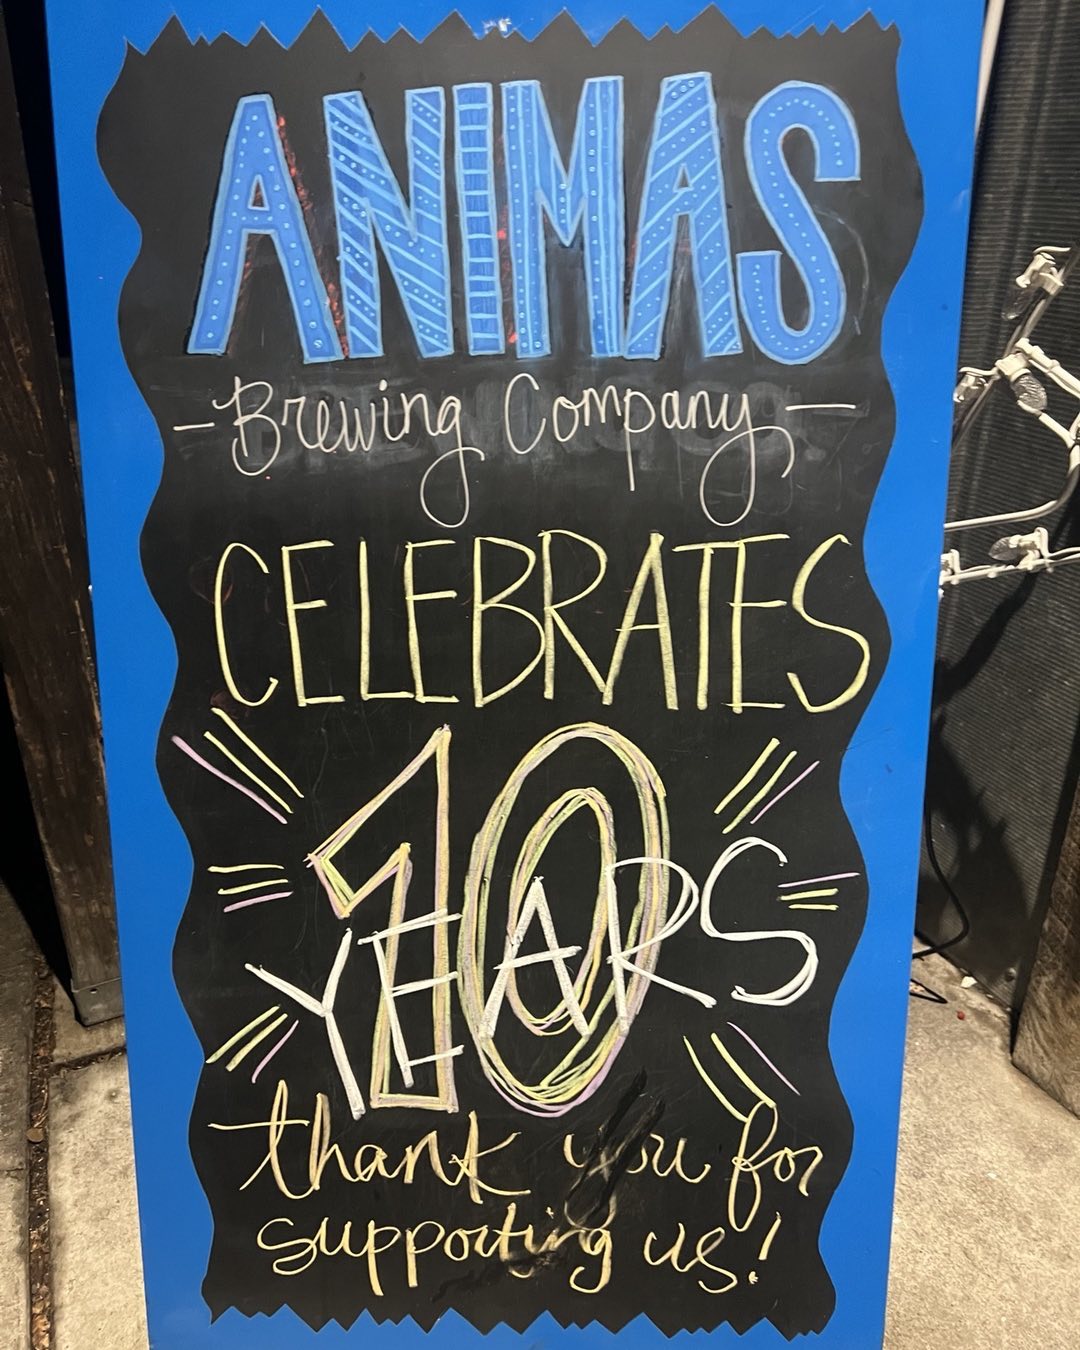 ANIMAS
- Brewing Company -
CELEBRATES
10
YEARS
thank you for
supporting us!